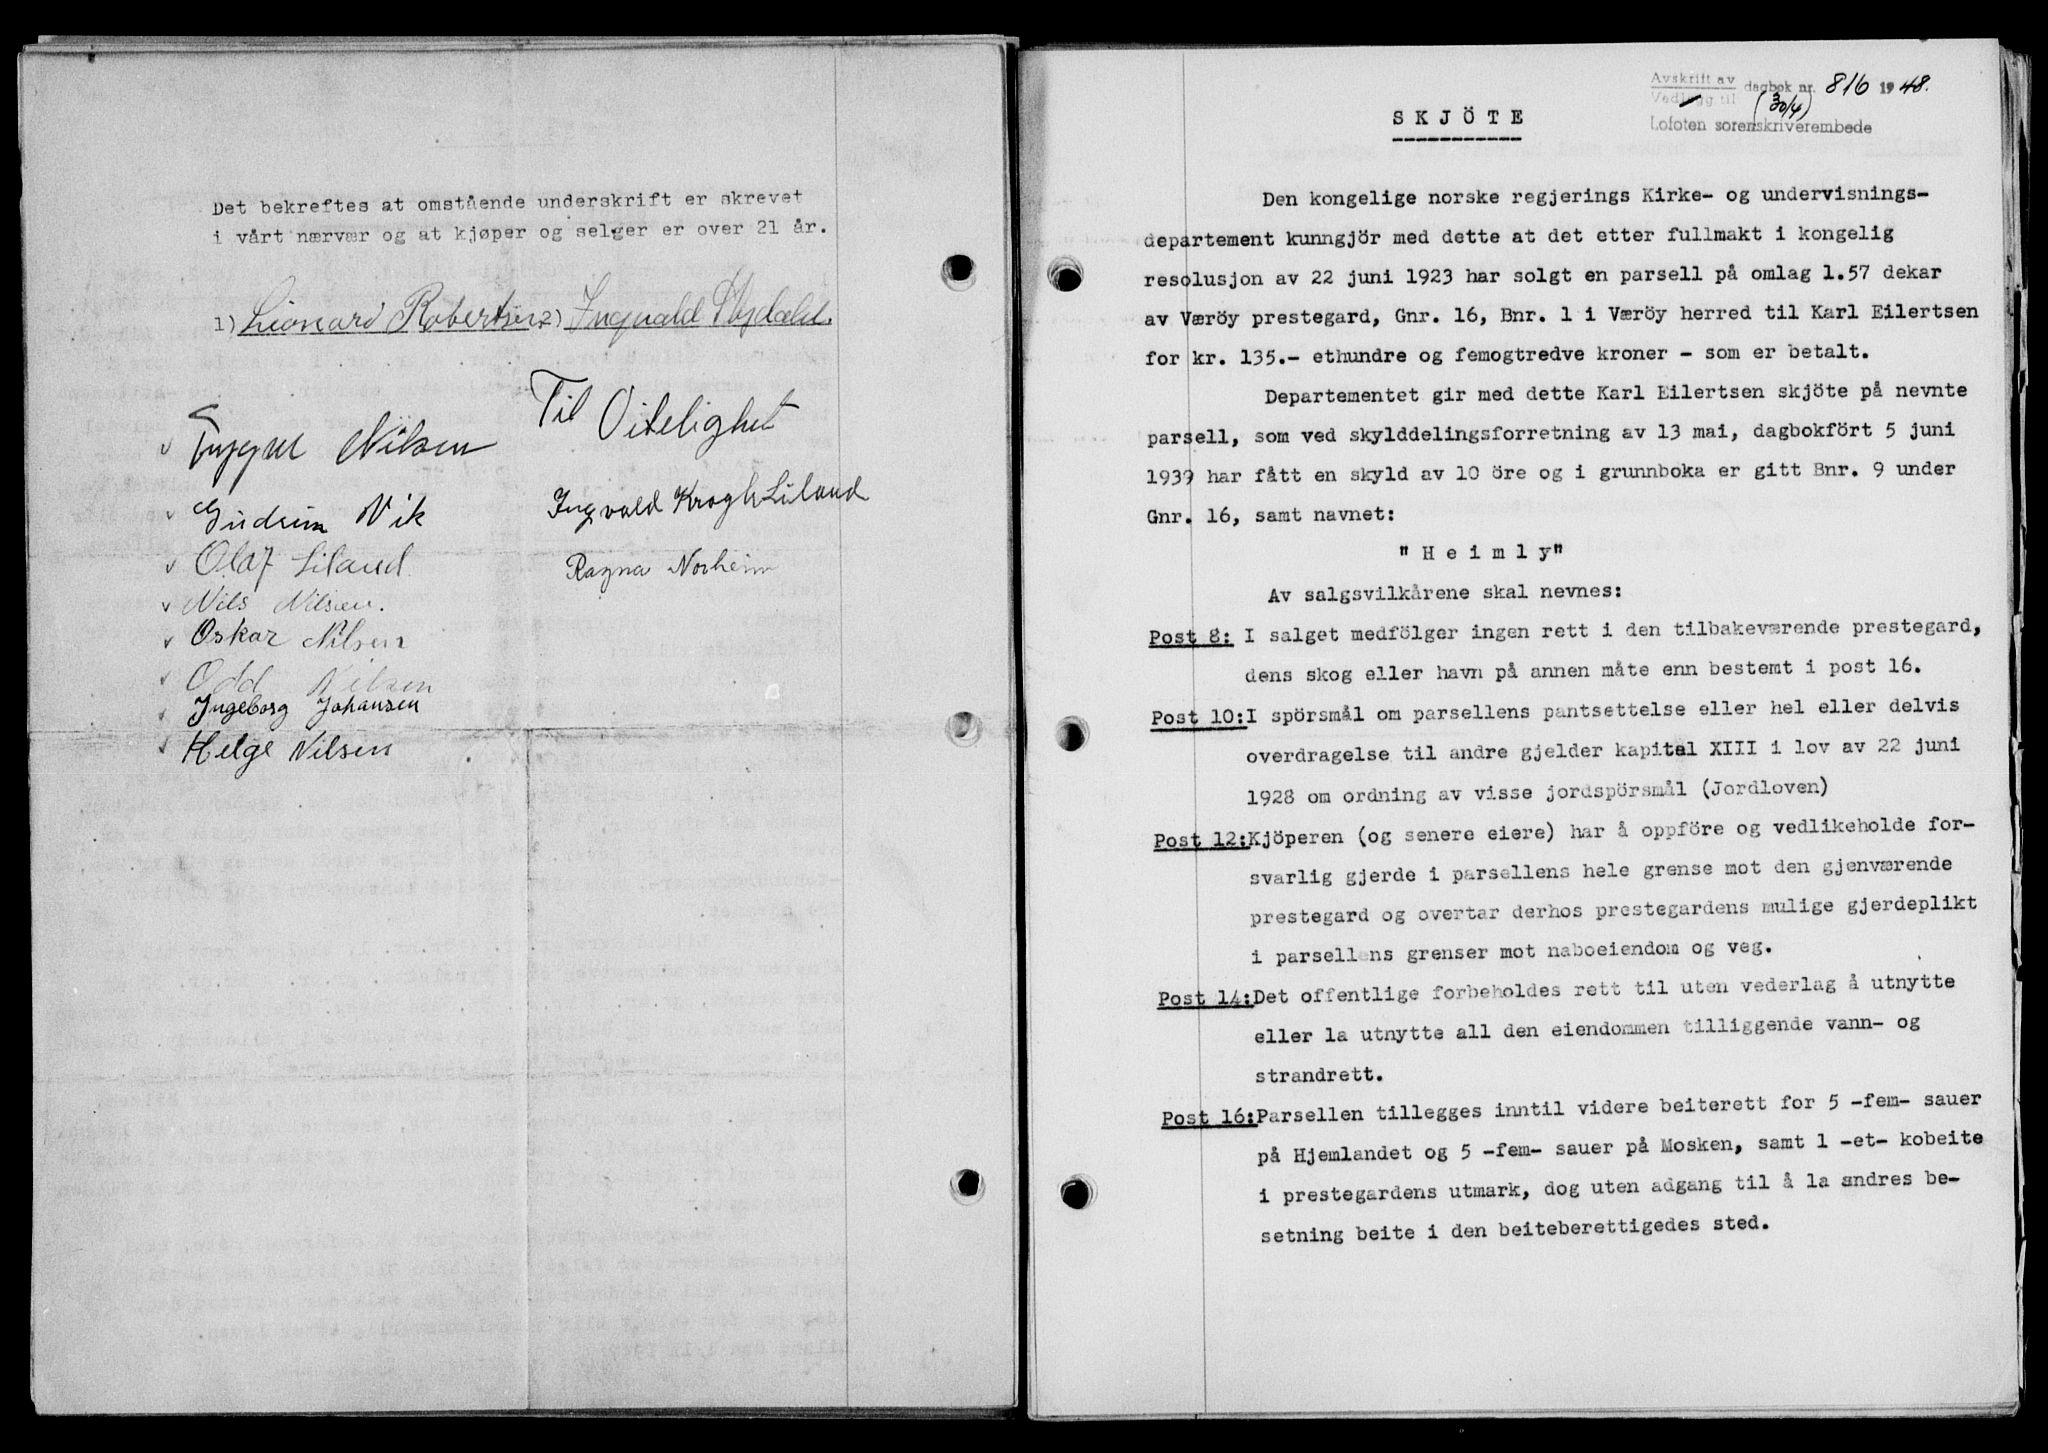 Det bekreftes at omstående underskrift er skrevet
i vårt nærvær og at kjøper og selger er over 21 år.
1) Leonard Robertsen 2) Ingvald
Til Vitelighet
Nilsen
Gudrun Vik
Ingvald Krogh Liland
Olaf Liland
Ragna Norheim
Nils Nilsen.
Oskar Nilsen
Odd Nilsen
Ingeborg Johansen
Helge Nilsen
Avskrift av
Vedlegg til
dagbok nr. 816 1948.
(30/4)
Lofoten sorenskriverembede
SKJÖTE
Den kongelige norske regjerings Kirke- og undervisnings-
departement kunngjör med dette at det etter fullmakt i kongelig
resolusjon av 22 juni 1923 har solgt en parsell på omlag 1.57 dekar
av Væröy prestegard, Gnr. 16, Bnr. 1 i Væröy herred til Karl Eilertsen
for kr. 135.- ethundre og femogtredve kroner - som er betalt.
Departementet gir med dette Karl Eilertsen skjöte på nevnte
parsell, som ved skylddelingsforretning av 13 mai, dagbokfört 5 juni
1939 har fått en skyld av 10 öre og i grunnboka er gitt Bnr. 9 under
Gnr. 16, samt navnet:
"Heimly"
Av salgsvilkårene skal nevnes:
Post 8: I salget medfölger ingen rett i den tilbakeværende prestegard,
dens skog eller havn på annen måte enn bestemt i post 16.
Post 10: I spörsmål om parsellens pantsettelse eller hel eller delvis
overdragelse til andre gjelder kapitel XIII i lov av 22 juni
1928 om ordning av visse jordspörsmål (Jordloven)
Post 12: Kjöperen (og senere eiere) har å oppföre og vedlikeholde for-
svarlig gjerde i parsellens hele grense mot den gjenværende
prestegard og overtar derhos prestegardens mulige gjerdeplikt
i parsellens grenser mot naboeiendom og veg.
Post 14: Det offentlige forbeholdes rett til uten vederlag å utnytte
eller la utnytte all den eiendommen tilliggende vann- og
strandrett.
Post 16: Parsellen tillegges inntil videre beiterett for 5 -fem- sauer
på Hjemlandet og 5 -fem- sauer på Mosken, samt 1 -et- kobeite
i prestegardens utmark, dog uten adgang til å la andres be-
setning beite i den beiteberettigedes sted.